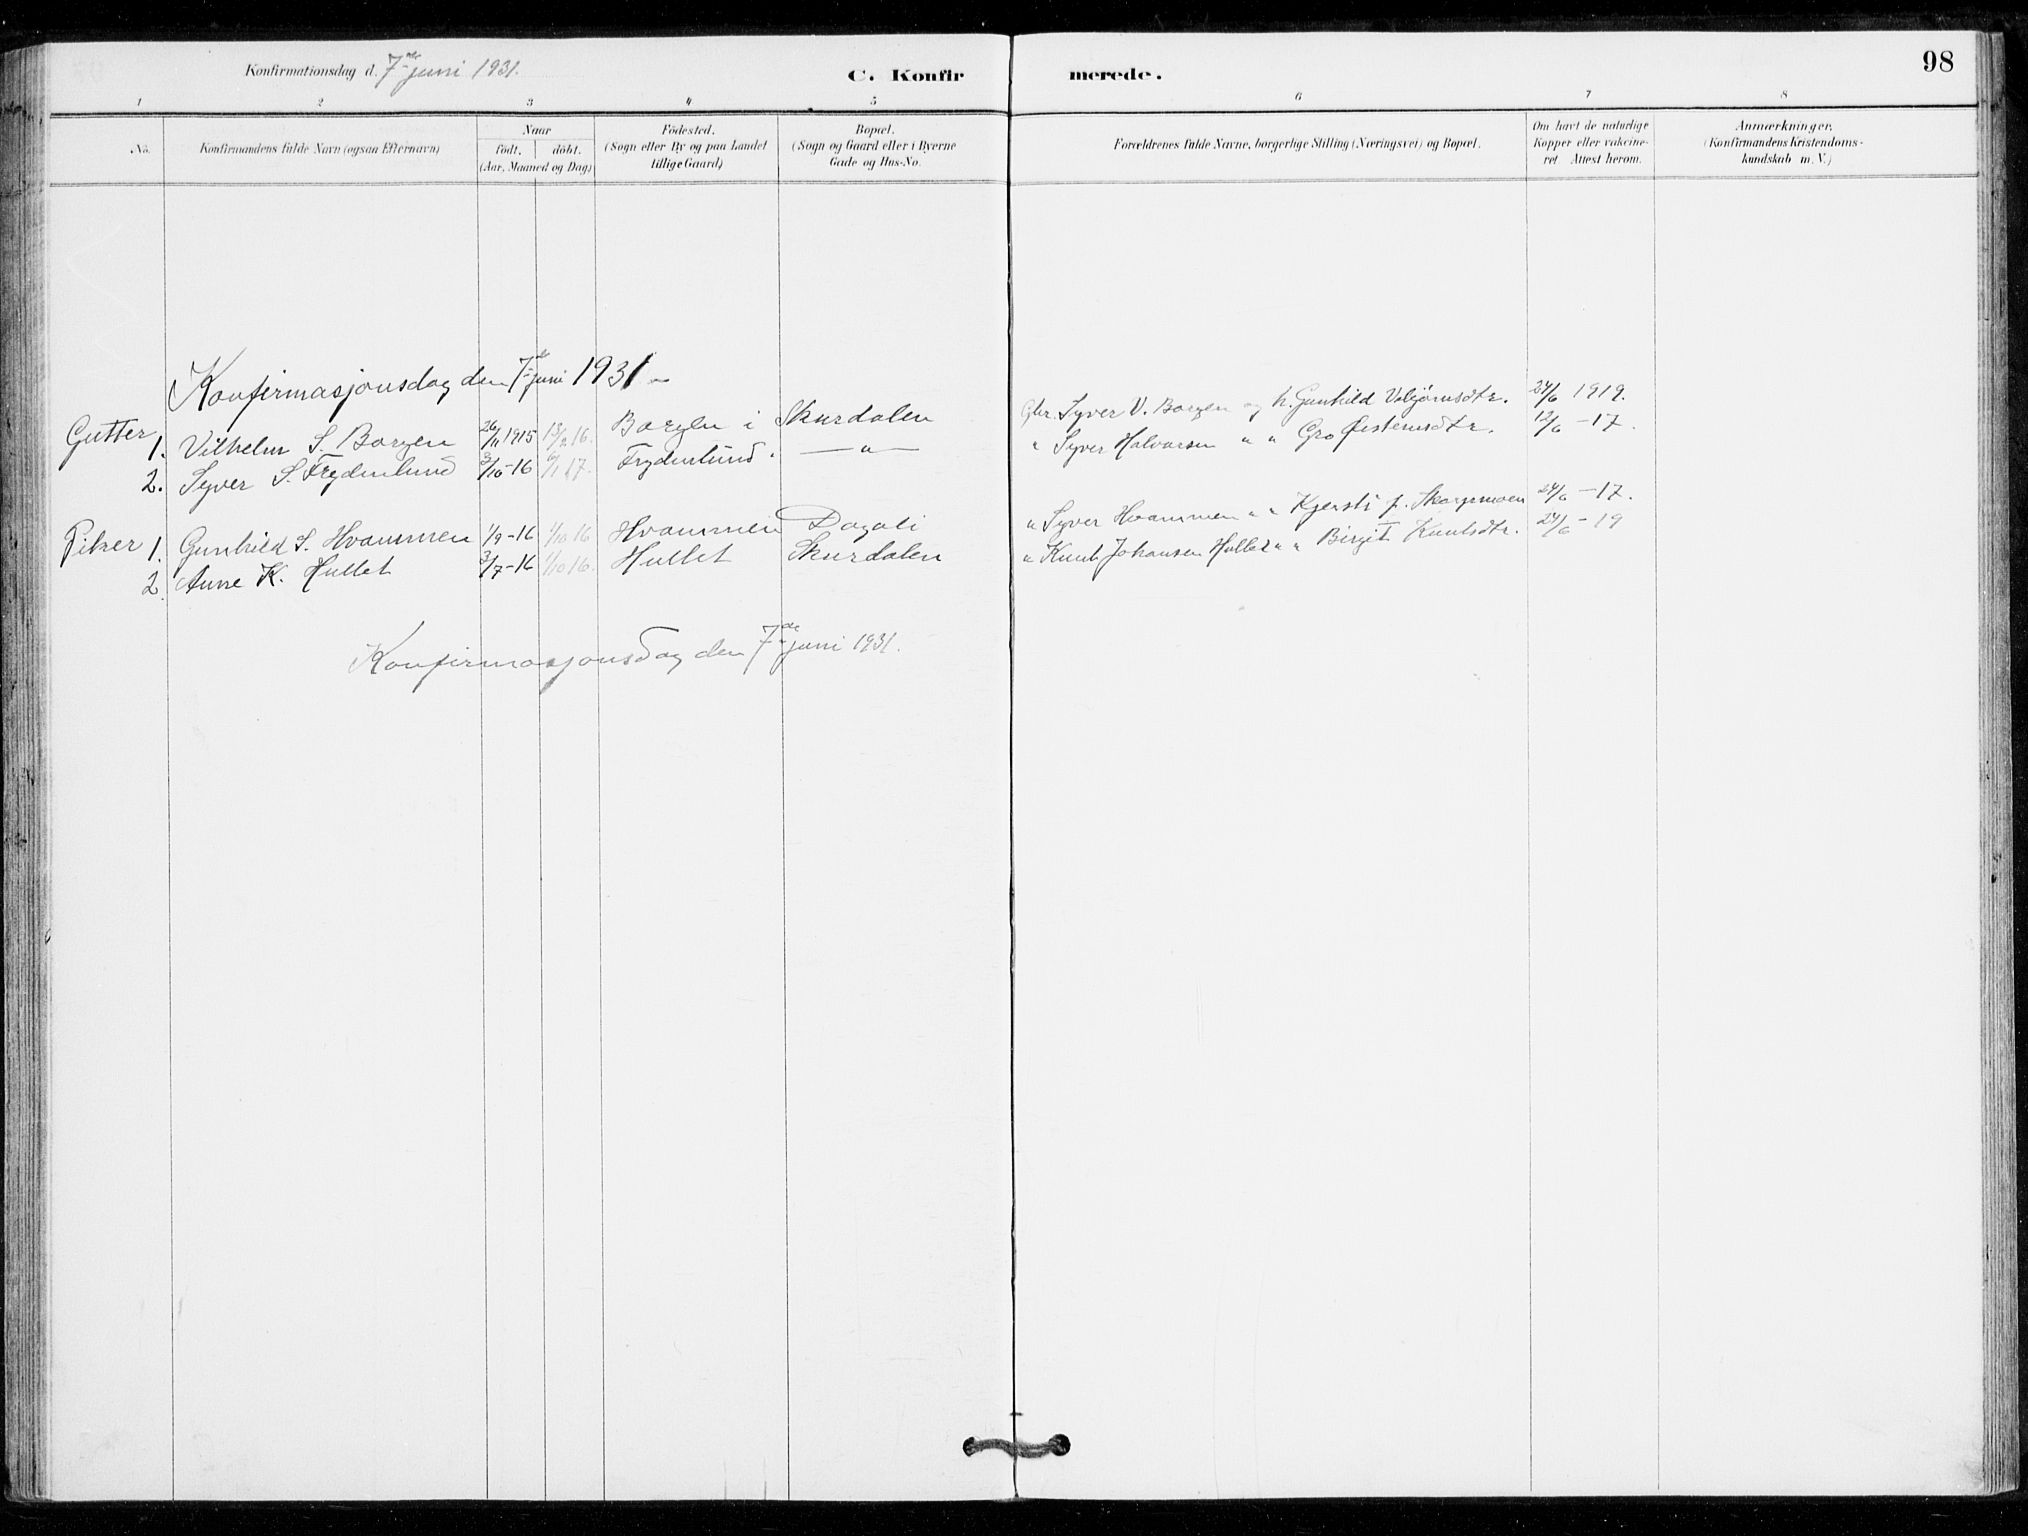 Konfirmationsdag d. 7de juni 1931.
C. Konfirmerede.
98
1 2 3 4 5 6 7 8
No.
Konfirmandens fulde Navn (ogsaa Efternavn)
Naar
født. døbt.
(Aar, Maaned og Dag)
Fødested.
(Sogn eller By og paa Landet
tillige Gaard)
Bopæl.
(Sogn og Gaard eller i Byerne
Gade og Hus-No.
Forældrenes fulde Navne, borgerlige Stilling (Næringsvei) og Bopæl.
Om havt de naturlige
Kopper eller vakcine-
ret Attest herom.
Anmærkninger.
(Konfirmandens Kristendoms-
kundskab m. V.)
Konfirmasjonsdag den 7de juni 1931
Gutter 1. Vilhelm S. Borgen 26/11 1915 13/2 16. Borgen i Skurdalen Gbr. Syver V. Borgen og h. Gunhild Vebjørnsdtr. 24/6 1919.
2. Syver S. Frydenlund 3/10-16 6/1 17. Frydenlund. — " — " Syver Halvorsen " " Gro Østensdtr. 12/6 -17.
Piker 1. Gunhild S. Hvammen 1/9-16 1/10 16 Hvammen Dagali " Syver Hvammen " " Kjersti f. Skarpmoen 24/6 -17.
2. Anne K. Hullet 3/7-16 1/10 16. Hullet Skurdalen " Knut Johansen Hullet " " Birgit Knutsdtr. 24/6 -19
Konfirmasjonsdag den 7de juni 1931.